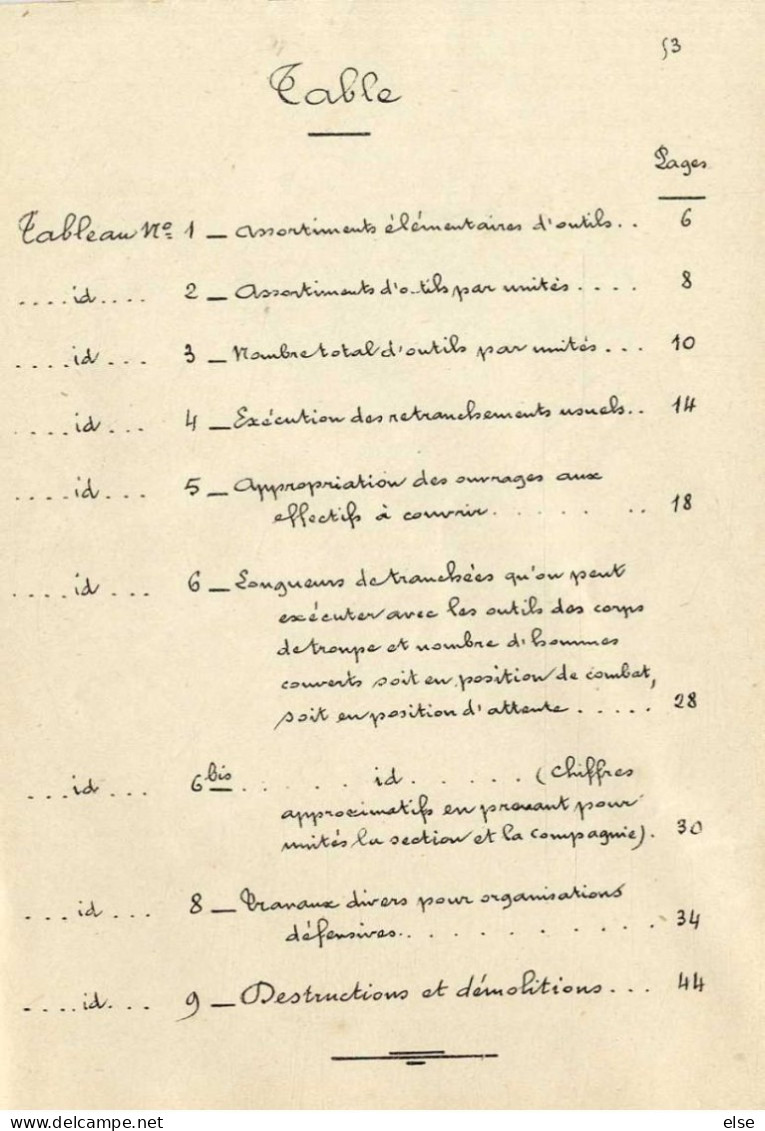 53
Table
Pages
Tableau No 1 — Assortiments élémentaires d'outils.. 6
....id.... 2 — Assortiments d'o..tils par unités.... 8
....id... 3 — Nombre total d'outils par unités... 10
....id... 4 — Exécution des retranchements usuels.. 14
....id... 5 — Appropriation des ouvrages aux
effectifs à couvrir....... .. 18
....id... 6 — Longueurs de tranchées qu'on peut
exécuter avec les outils des corps
de troupe et nombre d'hommes
couverts soit en position de combat,
soit en position d'attente..... 28
...id... 6 bis ..... id ..... (Chiffres
approximatifs en prenant pour
unités la section et la compagnie). 30
...id... 8 — Travaux divers pour organisations
défensives........... 34
....id... 9 — Destructions et démolitions... 44
else
DELCAMPE.NET